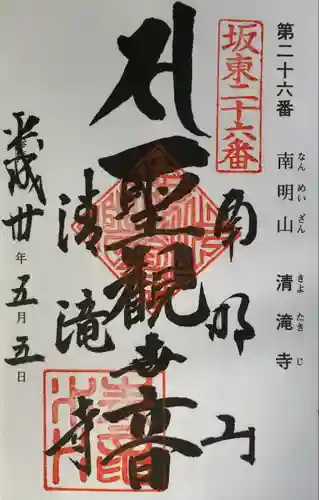 第二十六番 南明山 清滝寺
なんめいざん きよたきじ
坂東二十六番
南明山
聖観世音
清滝寺
平成卅年五月五日